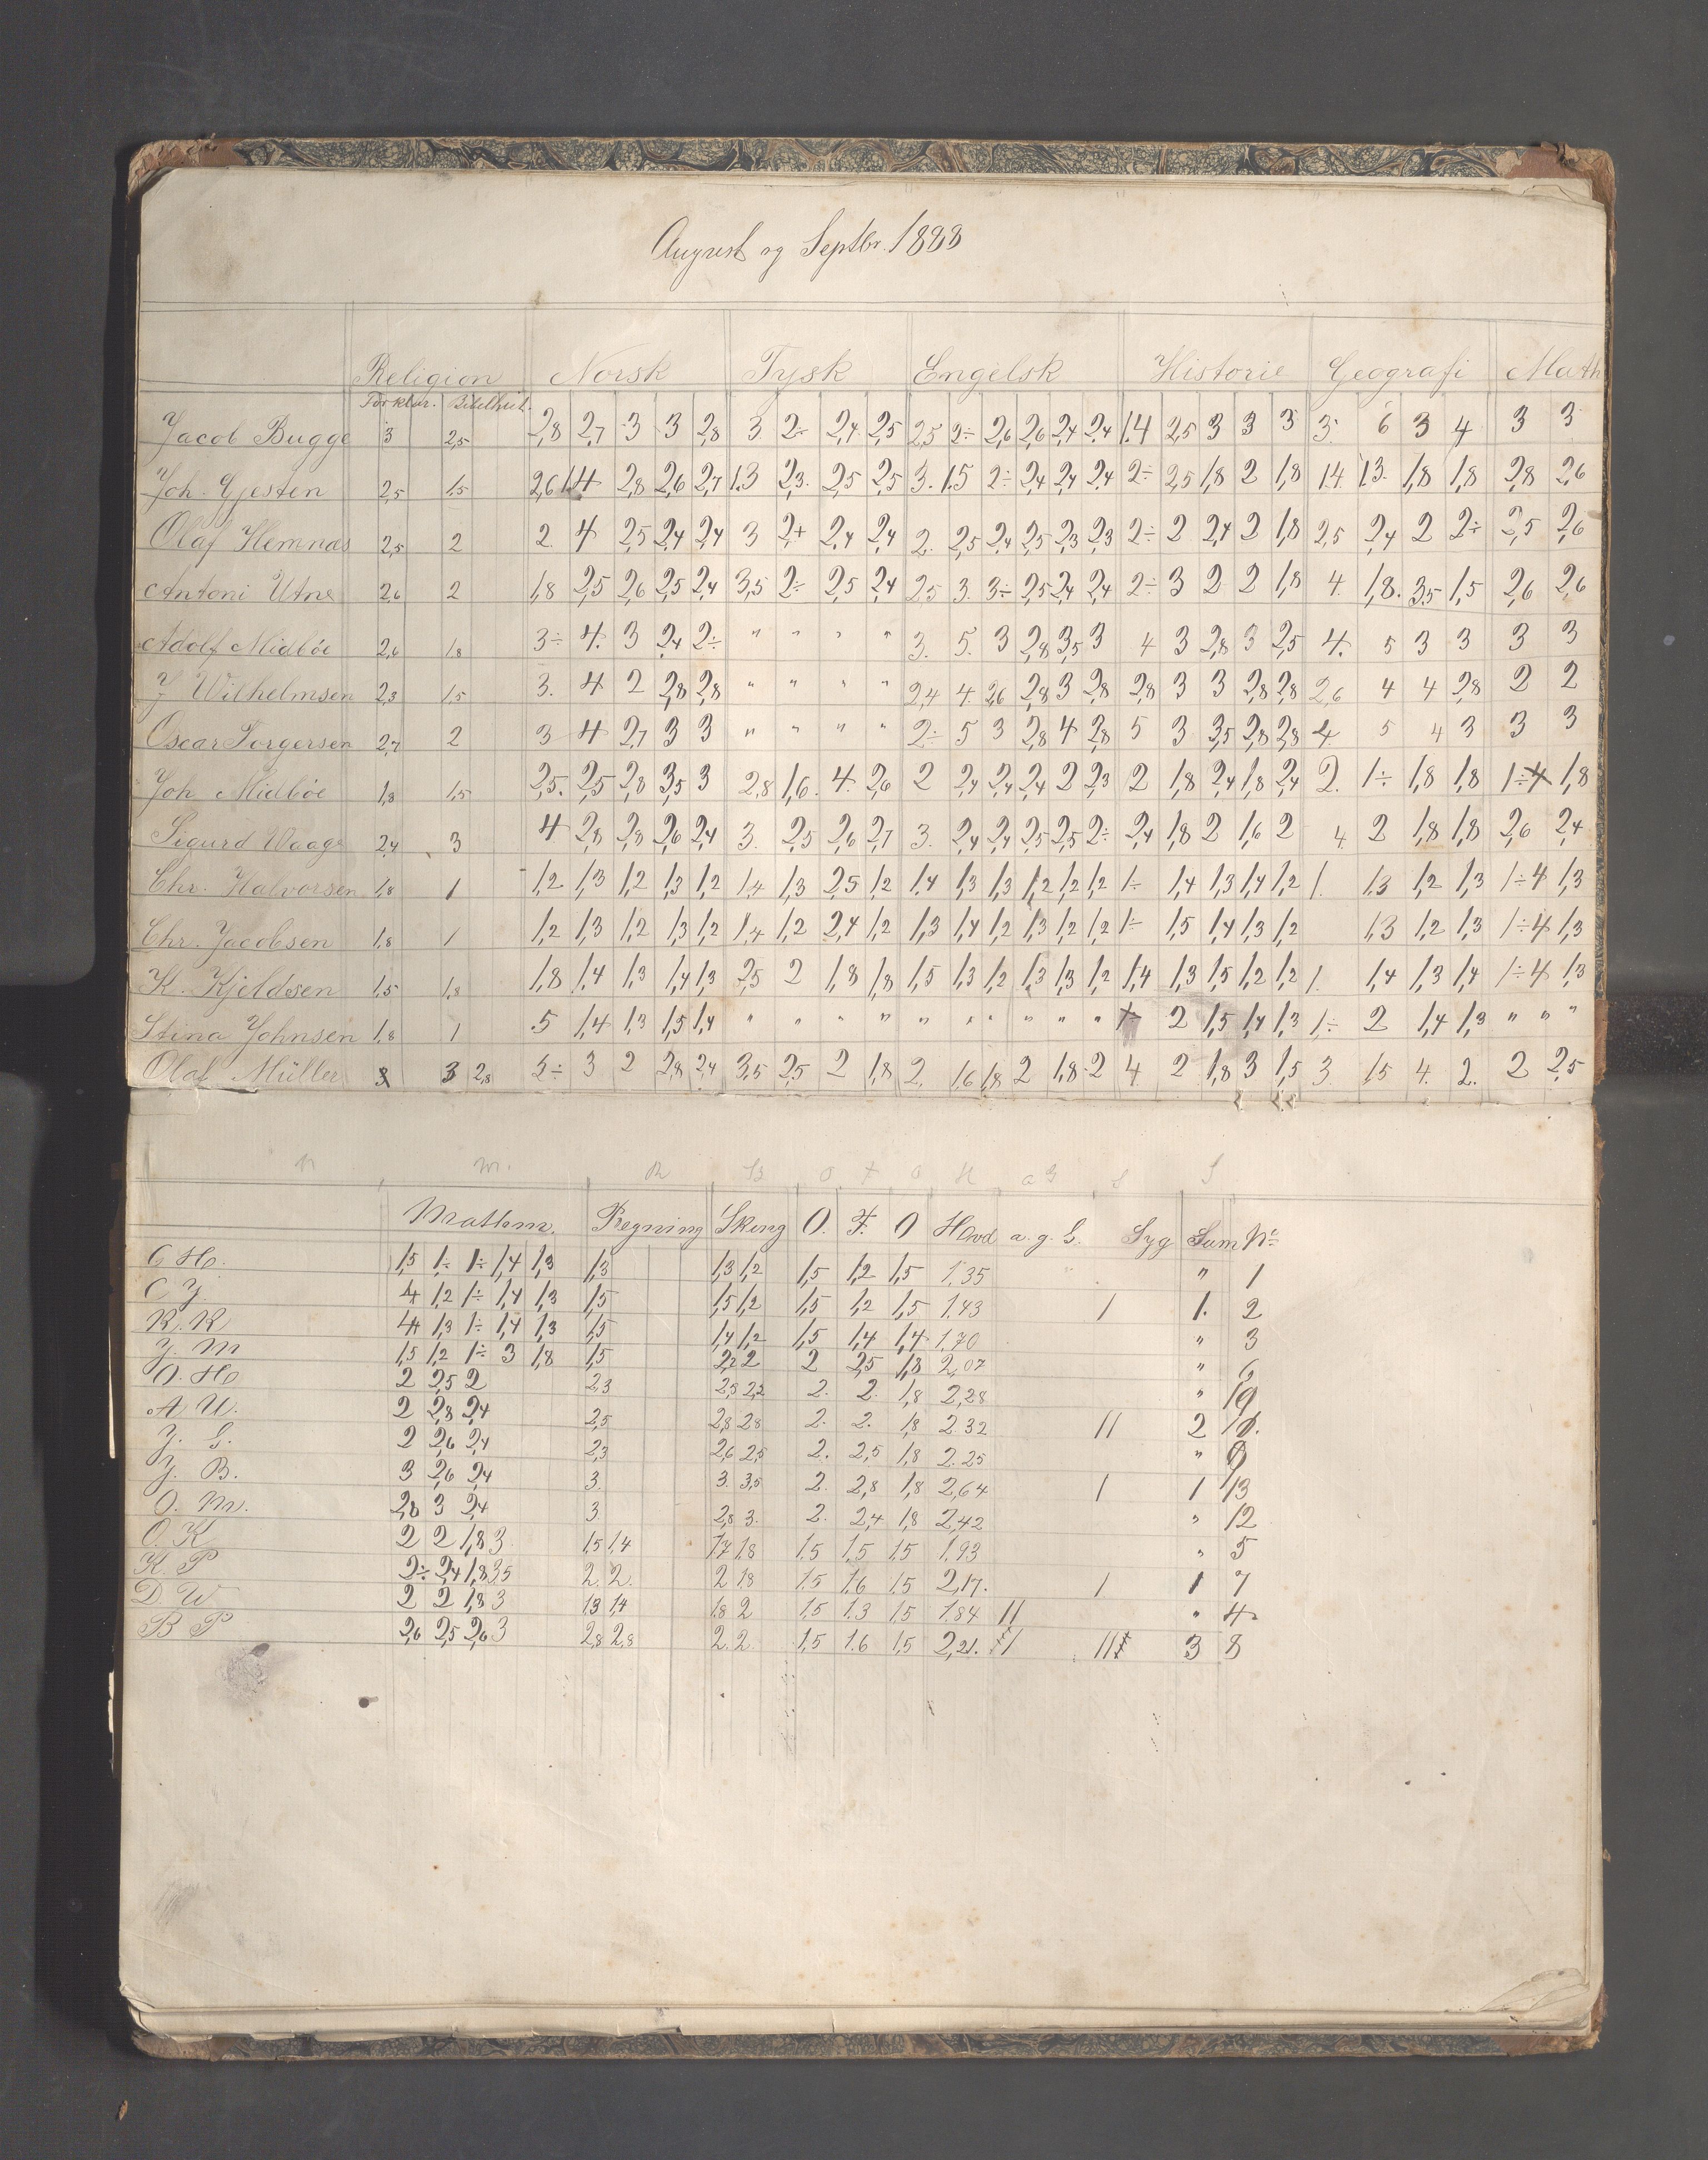 August og Septbr. 1888
Religion Norsk Tysk Engelsk Historie Geografi Math
Forklar. Bibelhist.
Jacob Bugge 3 2,5 2,8 2,7 3 3 2,8 3 2÷ 2,4 2,5 2,5 2÷ 2,6 2,6 2,4 2,4 1,4 2,5 3 3 3 3. 6 3 4 3 3
Joh. Gjesten 2,5 1,5 2,6 1,4 2,8 2,6 2,7 1,3 2,3. 2,5 2,5 3. 1,5 2÷ 2,4 2,4 2,4 2÷ 2,5 1,8 2 1,8 1,4 1,3. 1,8 1,8 2,8 2,6
Olaf Hemnæs 2,5 2 2. 4 2,5 2,4 2,4 3 2,+ 2,4 2,4 2. 2,5 2,4 2,5 2,3 2,3 2÷ 2 2,4 2 1,8 2,5 2,4 2 2÷ 2,5 2,6
Antoni Utne 2,6 2 1,8 2,5 2,6 2,5 2,4 3,5 2÷ 2,5 2,4 2,5 3. 3÷ 2,5 2,4 2,4 2÷ 3 2 2 1,8 4. 1,8. 3,5 1,5 2,6 2,6
Adolf Midbøe 2,6 1,8 3÷ 4. 3 2,4 2÷ " " " " 3. 5. 3 2,8 3,5 3 4 3 2,8 3 2,5 4. 5 3 3 3 3
J Wilhelmsen 2,3 1,5 3. 4 2 2,8 2,8 " " " " 2,4 4. 2,6 2,8 3 2,8 2,8 3 3 2,8 2,8 2,6 4 4 2,8 2 2
Oscar Torgersen 2,7 2 3 4 2,7 3 3 " " " " 2÷ 5 3 2,8 4 2,8 5 3 3,5 2,8 2,8 4. 5 4 3 3 3
Joh Midbøe 1,8 1,5 2,5. 2,5 2,8 3,5 3 2,8 1,6. 4. 2,6 2 2,4 2,4 2,4 2 2,3 2 1,8 2,4 1,8 2,4 2. 1÷ 1,8 1,8 1÷4 1,8
Sigurd Waage 2,4 3 4 2,8 2,8 2,6 2,4 3. 2,5 2,6 2,7 3. 2,4 2,4 2,5 2,5 2÷ 2,4 1,8 2 1,6 2 4 2 1,8 1,8 2,6 2,4
Chr. Halvorsen 1,8 1 1,2 1,3 1,2 1,3 1,2 1,4 1,3 2,5 1,2 1,4 1,3 1,3 1,2 1,2 1,2 1÷ 1,4 1,3 1,4 1,2 1. 1,3 1,2 1,3 1÷4 1,3
Chr. Jacobsen 1,8 1 1,2 1,3 1,2 1,3 1,2 1,4 1,2 2,4 1,2 1,3 1,4 1,2 1,3 1,2 1,2 1÷ 1,5 1,4 1,3 1,2 1,3 1,2 1,3 1÷4 1,3
K. Kjeldsen 1,5 1,8 1,8 1,4 1,3 1,4 1,3 2,5 2 1,8 1,8 1,5 1,3 1,2 1,3 1,3 1,2 1,4 1,3 1,5 1,2 1,2 1. 1,4 1,3 1,4 1÷4 1,3
Stina Johnsen 1,8 1 .5 1,4 1,3 1,5 1,4 " " " " " " " " " " 1÷ 2 1,5 1,4 1,3 1÷ 2 1,4 1,3 " " "
Olaf Müller 3 2,8 3÷ 3 2 2,8 2,4 3,5 2,5 2 1,8 2. 1,6 1,8 2 1,8 2 4 2 1,8 3 1,5 3. 1,5 4. 2. 2 2,5
n m. R S O F O H a G S S
Mathm. Regning Skrivg O. F. O Hovd a. g. G. Syg Sum No
C H. 1,5 1÷ 1÷ 1,4 1,3 1,3 1,3 1,2 1,5 1,2 1,5 1,35 " 1
C J. 4 1,2 1÷ 1,4 1,3 1,5 1,5 1,2 1,5 1,2 1,5 1,43 1 1. 2
K. K 4 1,3 1÷ 1,4 1,3 1,5 1,4 1,2 1,5 1,4 1,4 1,70 " 3
J. M 1,5 1,2 1÷ 3 1,8 1,5 2,2 2 2 2,5 1,8 2,07 " 6
O. H 2 2,5 2 2,3 2,3 2,2 2. 2. 1,8 2,28 " 10
A U. 2 2,8 2,4 2,5 2,8 2,8 2. 2. 1,8 2.32 11 2 11.
J. G. 2 2,6 2,4 2,3 2,6 2,5 2. 2,5 1,8 2.25 " 9
J. B. 3 2,6 2,4 3. 3. 3,5 2. 2,8 1,8 2,64 1 1 13
O. M. 2,8 3 2,4 3 2,8 3. 2. 2,4 1,8 2,42 " 12
O. K 2 2 1,8 3 1,5 1,4 1,7 1,8 1,5 1,5 1,5 1,93 " 5
K. P 2÷ 2,4 1,8 3,5 2. 2. 2 1,8 1,5 1,6 1,5 2,17. 1 1 7
D. W 2 2 1,8 3 1,3 1,4 1,8 2 1,5 1,3 1,5 1,84 11 " 4
B P 2,6 2,5 2,6 3 2,8 2,8 2. 2. 1,5 1,6 1,5 2,21. 3 8